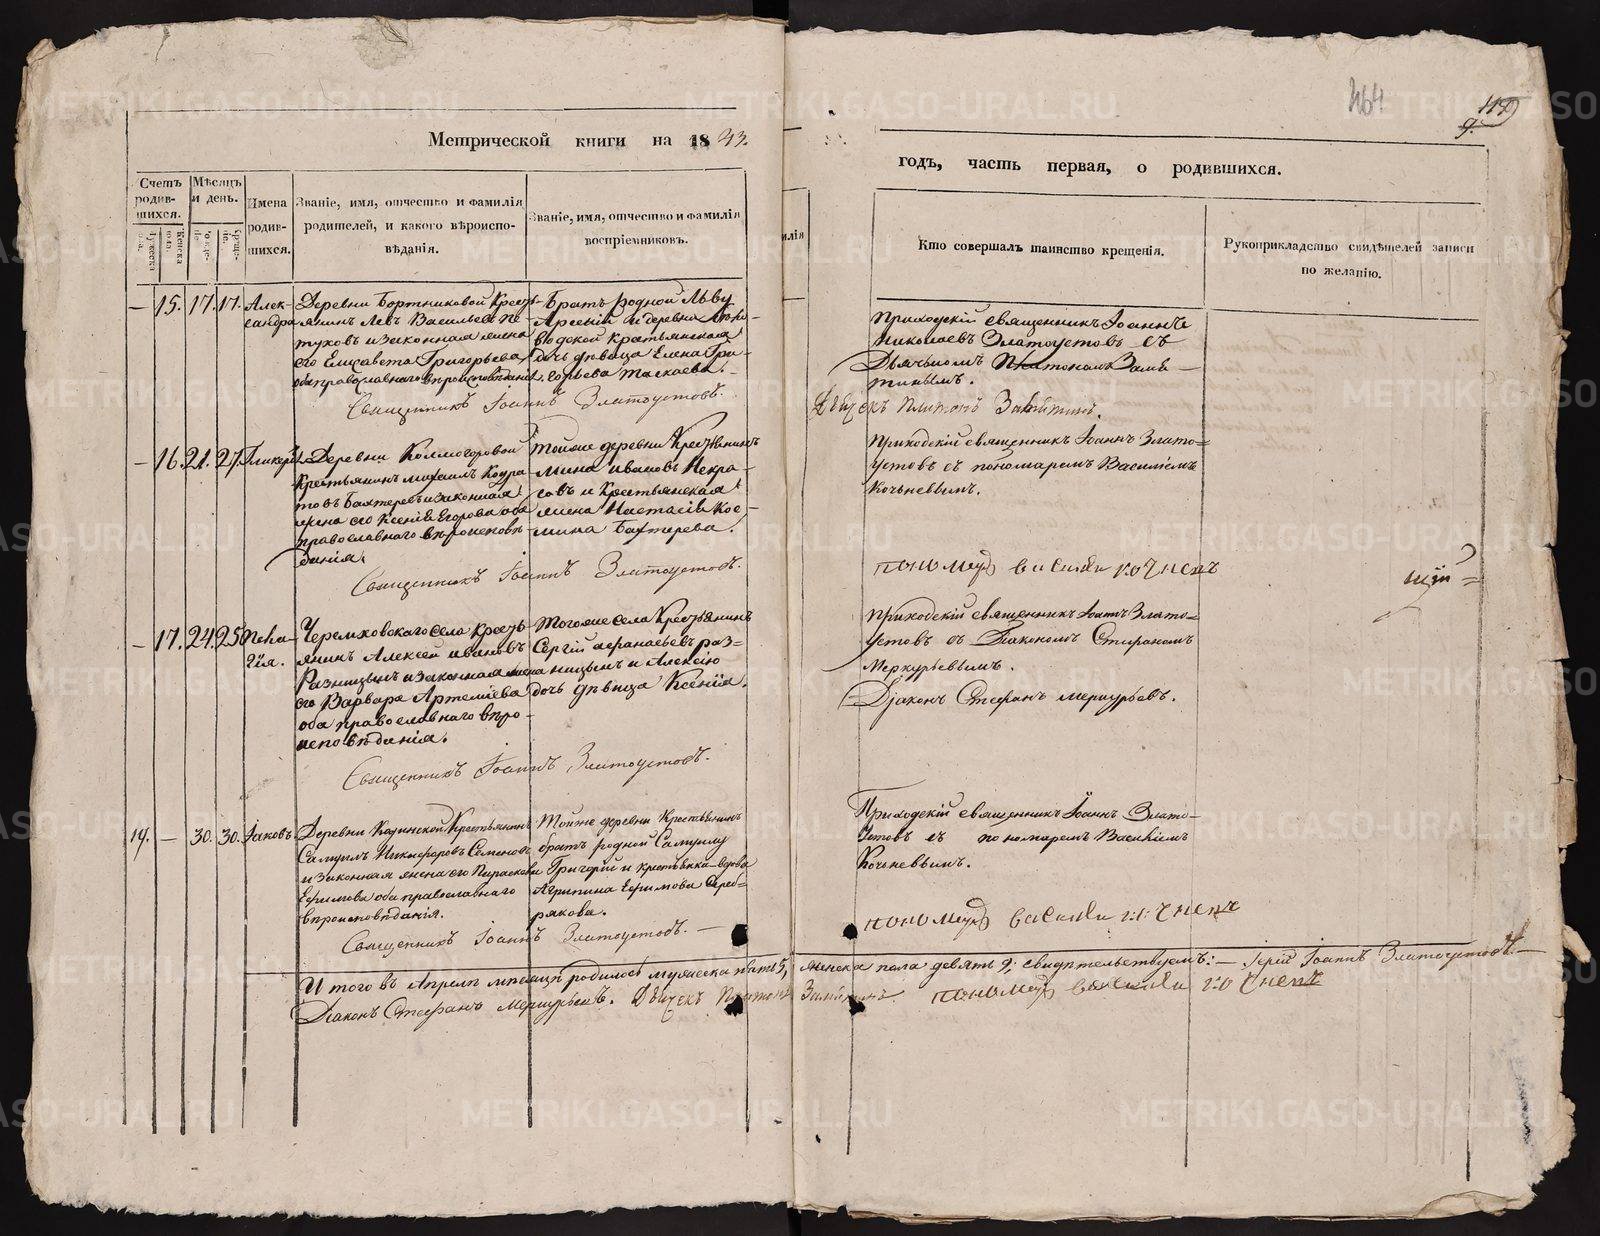 464
119
9.
Метрической книги на 1843.
годъ, часть первая, о родившихся.
Счетъ родившихся.
Мѣсяцъ и день.
Имена родившихся.
Званіе, имя, отчество и фамилія родителей, и какого вѣроисповѣданія.
Званіе, имя, отчество и фамилія воспріемниковъ.
Кто совершалъ таинство крещенія.
Рукоприкладство свидѣтелей записи по желанію.
— 15. 17. 17. Александра
Деревни Бортниковой Кресть-
янинъ Левъ Васильевъ Пе-
туховъ и законная жена
его Елисавета Григорьева
оба православнаго вѣроисповѣданія.
Братъ родной Льву
Арсеній и деревни
водской крестьянская
дочь дѣвица Елена Гри-
горьева Таскаева.
Священникъ Іоаннъ Златоустовъ.
Приходскій священникъ Іоаннъ
Николаевъ Златоустовъ съ
Дьячкомъ Платономъ Замя-
тинымъ.
Дьячекъ Платонъ Замятинъ.
— 16. 21. 27. Гликерія
Деревни Колмогоровой
Крестьянинъ Михаилъ Кондра-
товъ Бахтеревъ и законная
жена его Ксенія Егорова оба
православнаго вѣроисповѣ-
данія.
Тойже деревни Крестьянинъ
Мина Ивановъ Некра-
совъ и Крестьянская
жена Настасія Кос-
мина Бахтерева.
Священникъ Іоаннъ Златоустовъ.
Приходскій священникъ Іоаннъ Злато=
устовъ съ пономаремъ Василіемъ
Кочневымъ.
пономарь василеи кочневъ
— 17. 24. 25. Пела-
гія.
Черемховскаго села Кресть-
янинъ Алексей Ивановъ
Разницынъ и законная жена
его Варвара Артеміева
оба православнаго вѣро-
исповѣданія.
Тогоже села Крестьянинъ
Сергій Афанасьевъ Раз=
ницынъ и Алексію
дочь дѣвица Ксенія.
Священникъ Іоаннъ Златоустовъ.
Приходскій священникъ Іоаннъ Злато-
устовъ съ Діакономъ Стефаномъ
Меркурьевымъ.
Діаконъ Стефанъ Меркурьевъ.
14. — 30. 30. Іаковъ.
Деревни Кадинской Крестьянинъ
Самуилъ Никифоровъ Семеновъ
и законная жена его Параскева
Ефимова оба православнаго
вѣроисповѣданія.
Тойже деревни Крестьянинъ
братъ родной Самуилу
Григорій и крестьянка вдова
Агрипина Ефимова Сереб=
рякова.
Священникъ Іоаннъ Златоустовъ. —
Приходскій священникъ Іоаннъ Злато-
устовъ съ пономаремъ Василіемъ
Кочневымъ.
пономарь василеи кочневъ
Итого въ Апрелѣ мѣсяцѣ родилось мужеска пять 5, женска пола девять 9; свидѣтельствуемъ: — Іерей Іоаннъ Златоустовъ. —
Діаконъ Стефанъ Меркурьевъ. Дьячекъ Платонъ Замятинъ. пономарь василеи кочневъ
METRIKI.GASO-URAL.RU